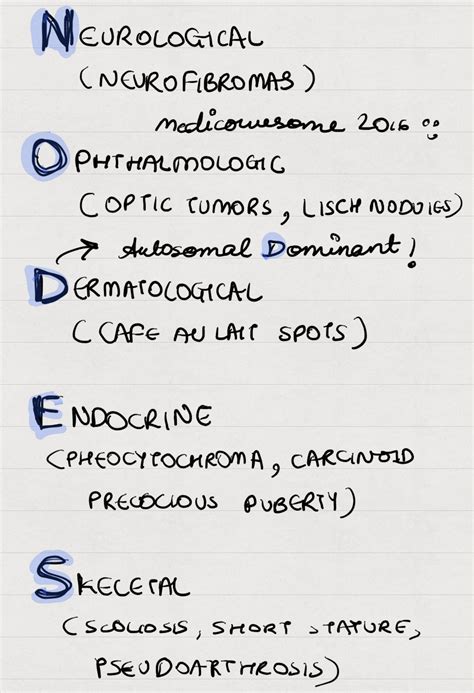 NEUROLOGICAL
(NEUROFIBROMAS)
medicowesome 2016 :)
OPHTHALMOLOGIC
(OPTIC TUMORS, LISCH NODULES)
→ Autosomal Dominant!
DERMATOLOGICAL
(CAFE AU LAIT SPOTS)
ENDOCRINE
(PHEOCYTOCHROMA, CARCINOID
PRECOCIOUS PUBERTY)
SKELETAL
(SCOLIOSIS, SHORT STATURE,
PSEUDOARTHROSIS)